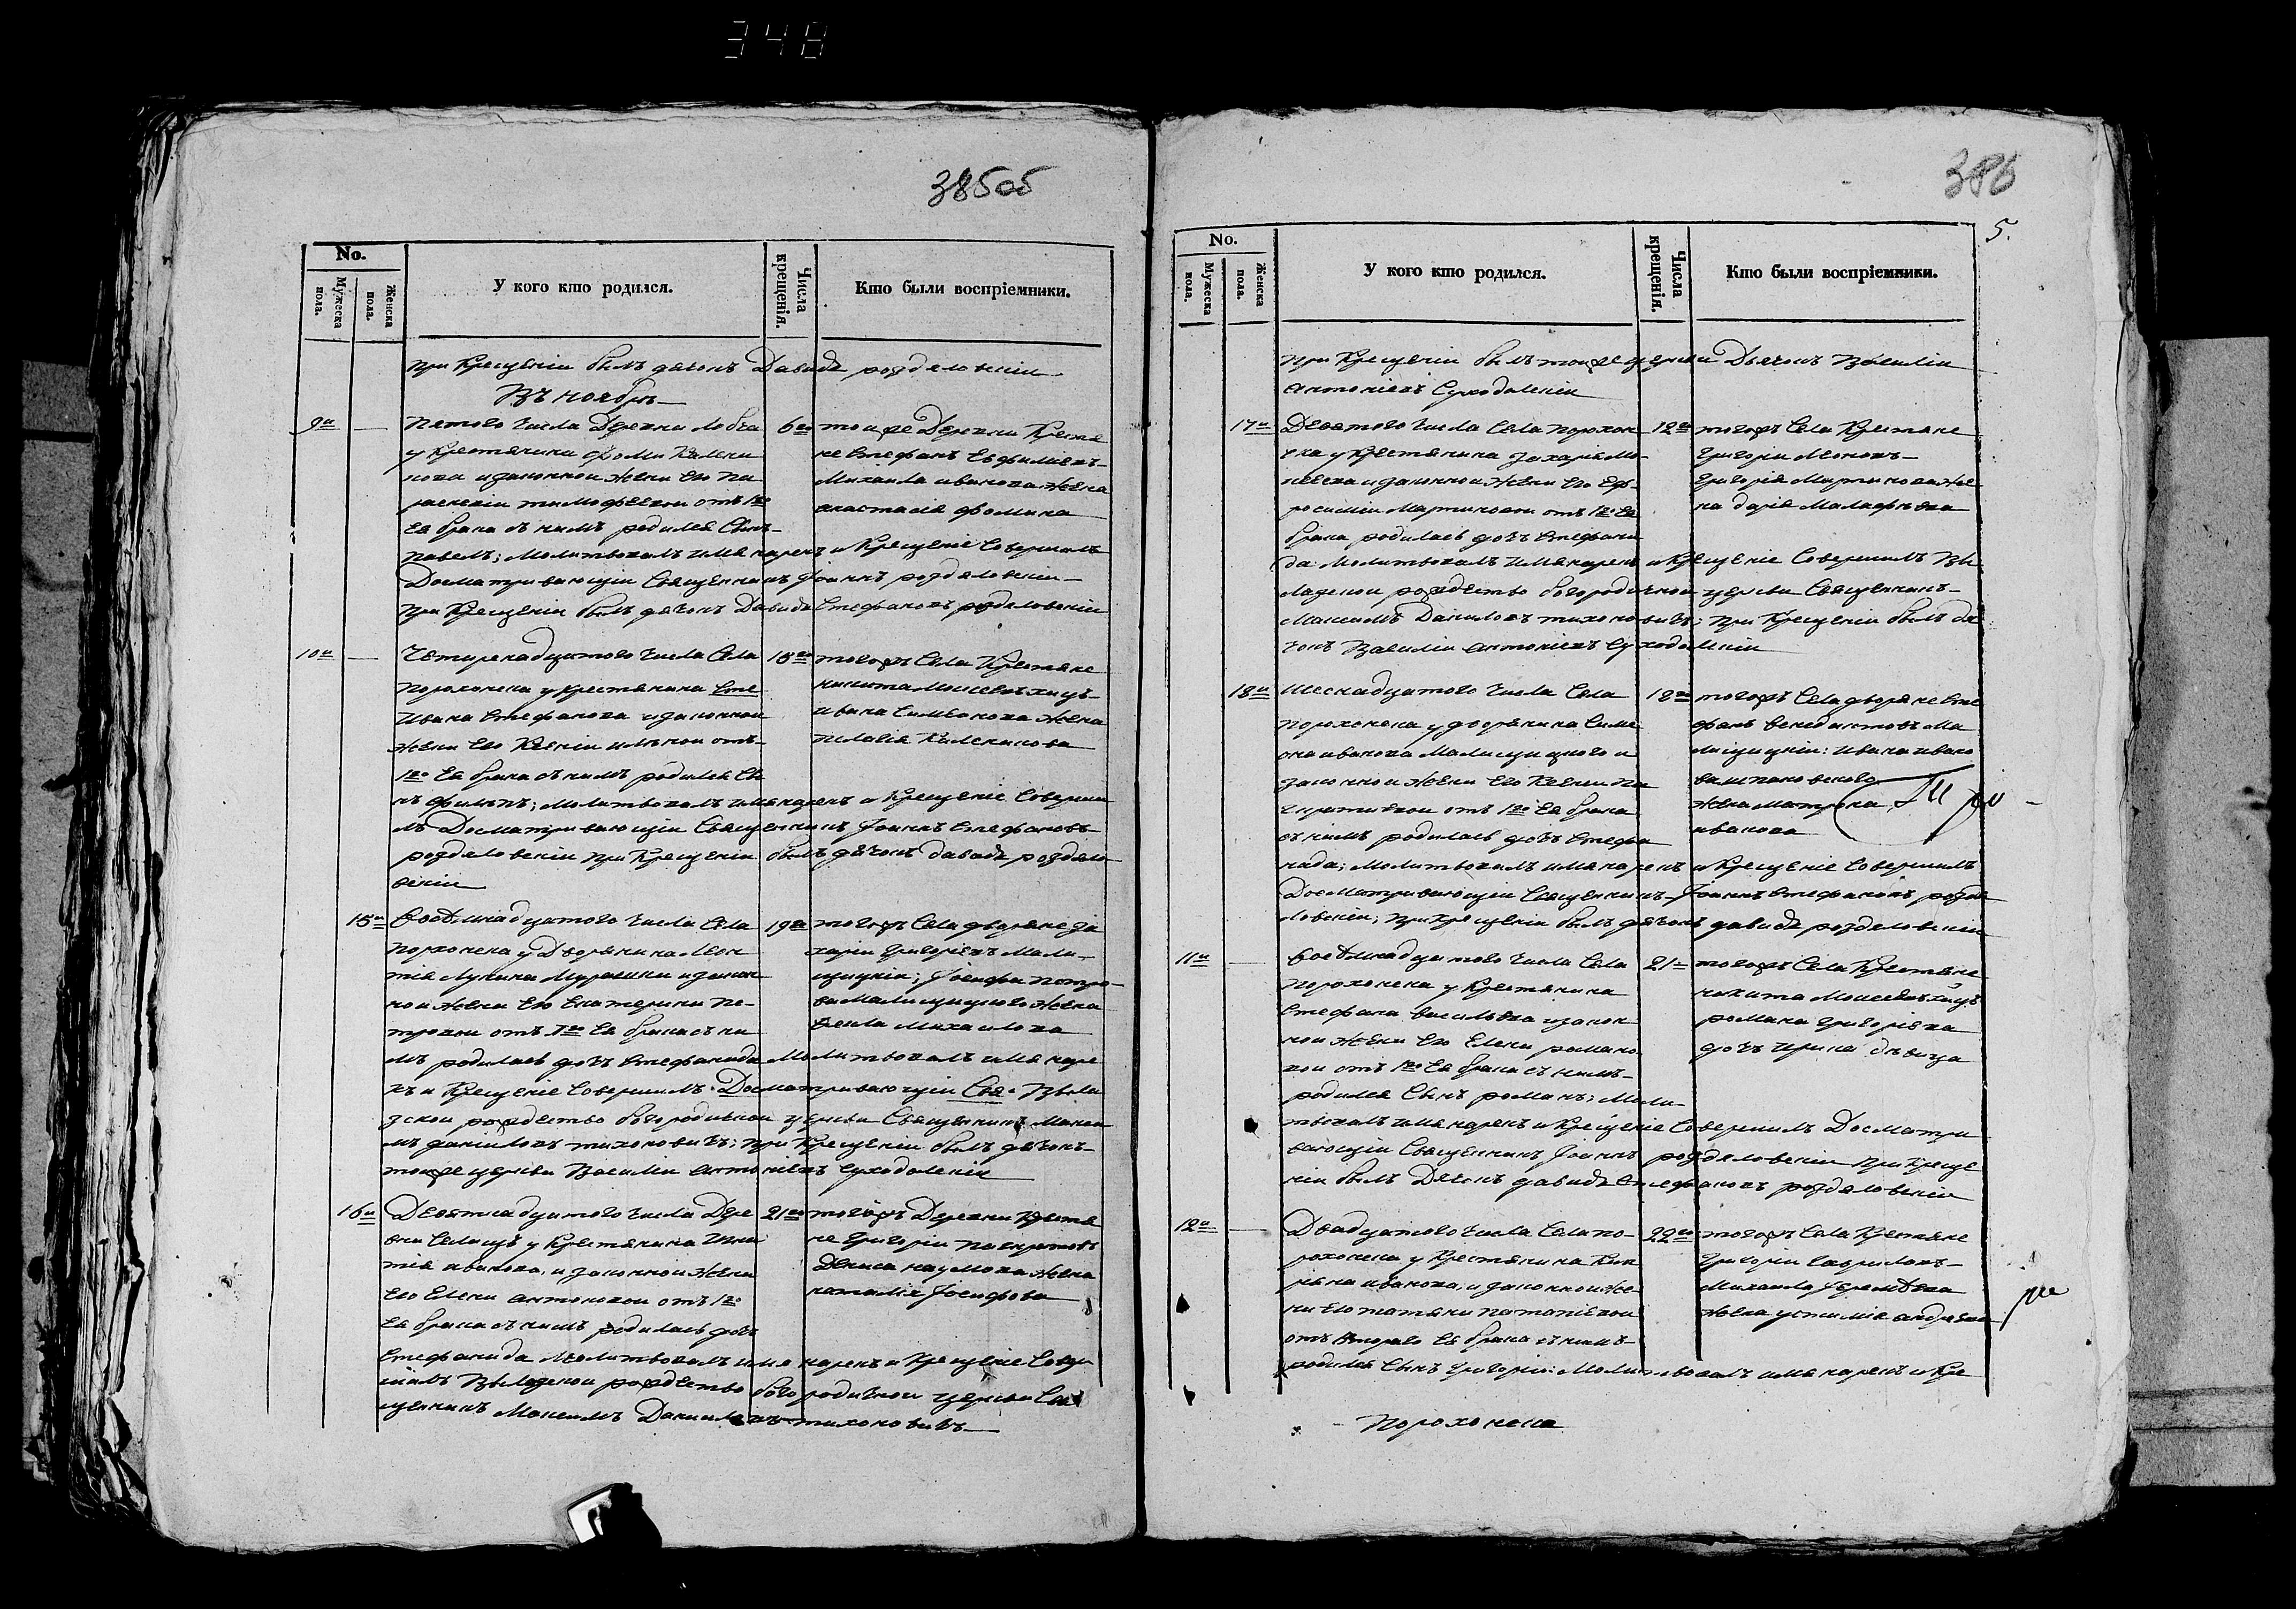 348
385об
No.
Мужеска пола.
Женска пола.
У кого кто родился.
Числа крещенія.
Кто были воспріемники.
при Крещеніи былъ дячокъ Давидъ розделовскіи
Въ ноябрѣ
9и
Петого числа Деревни
у Крестянина Фоми
и законнои жени его Па
раскевіи тимофѣевои отъ 1го
Ея брака съ нимъ родился Сынъ
павелъ; Молитвовалъ имя нарекъ и Крещеніе Совершилъ
Досматривающіи Священникъ Іоаннъ розделовскіи
при Крещеніи былъ дячокъ Давидъ Стефановъ розделовскіи
6го
тои же Деревни Крестя
не Стефанъ
Михаила иванова жена
анастасія фомина
10и
Четиренадцатого числа Села
Порохонска у крестянина Сте
Ивана Стефанова и законнои
жени его Ксеніи отъ
1го Ея брака съ нимъ родился Сы
нъ молитвовалъ имя нарекъ и Крещеніе Соверши
лъ Досматривающіи Священникъ Іоаннъ Стефановъ
розделовскіи при Крещеніи былъ дячокъ давидъ роздело
вскіи
15го
тогожъ Села Крестяне
никита
ивана Симеонова жена
пелагія
15и
Восемнадцатого числа Села
Порохонска у Дворянина Леон
тія Лукина и закон
нои жени его Екатерини Пе
тровои отъ 1го Ея брака съ ни
мъ родилась дочь Стефанида Молитвовалъ имя наре
къ и Крещеніе Совершилъ Досматривающіи Свя
рождество богородичнои церкви Священникъ Макси
мъ даніиловъ тихоновичъ; при Крещеніи былъ дячокъ
тои же церкви Василіи антоніевъ Суходолскіи
19го
тогожъ Села дворяне За
харіи Григоріевъ Мали
щицкіи; Іосифа петро
ва Малищицкого жена
Михаилова
16и
Девятнадцатого числа Дере
вни Селищъ у Крестянина Игна
тія иванова, и законнои жени
его Елени антоновои отъ 1го
Ея брака съ нимъ родилась дочь
Стефанида Молитвовалъ имя нарекъ и Крещеніе Совер
шилъ рождество богородичнои церкви Свя
щенникъ Максимъ Даниловъ тихоновичъ
21го
Деревни Крестя
не Григоріи
Дениса наумова жена
наталія Іосифова
386
5.
No.
Мужеска пола.
Женска пола.
У кого кто родился.
Числа крещенія.
Кто были воспріемники.
при Крещеніи былъ тои же церкви Дьячокъ Василіи
антоніевъ Суходолскіи
17и
Девятого числа Села порохон
ска у Крестянина захарія
и законнои жени его Еф
росиніи Мартиновои отъ 1го Ея
брака родилась дочь Стефани
да Молитвовалъ имя нарекъ и Крещеніе Совершилъ
рождество богородичнои церкви Священникъ
Максимъ Даниловъ тихоновичъ; при Крещеніи былъ дя
чокъ Василіи антоніевъ Суходолскіи
12го
тогожъ Села Крестяне
Григоріи
Григорія Мартинова же
на дарія
18и
Шеснадцатого числа Села
Порохонска у дворянина Симе
она иванова Малищицкого и
законнои жени его Ксеніи
отъ 1го Ея брака
съ нимъ родилась дочь Стефа
нида; Молитвовалъ имя нарекъ и Крещеніе Совершилъ
Досматривающіи Священникъ Іоаннъ Стефановъ розде
ловскіи; при крещеніи былъ дячокъ давидъ розделовскіи
18го
тогожъ Села дворяне Сте
фанъ венедиктовъ Ма
лищицкіи: Ивана ивано
ва
жена матрона
иванова
11и
Восемнадцатого числа Села
Порохонска у Крестянина
Стефана василіева и закон
нои жени его Елени романо
вои отъ 1го Ея брака съ нимъ
родился Сынъ романъ: Моли
твовалъ имя нарекъ и Крещеніе Совершилъ Досматри
вающіи Священникъ Іоаннъ розделовскіи При Креще
ніи былъ Дячокъ давидъ Стефановъ розделовскіи
21го
тогожъ Села Крестяне
никита
романа григоріева
дочь ирина дѣвица
12и
Двадцатого числа Села по
рохонска у Крестянина
иванова, и законнои же
ни его татяни
отъ втораго Ея брака съ нимъ
родился Сынъ григоріи: Молитвовалъ имя нарекъ и Кре
22го
тогожъ Села Крестяне
Григоріи Гавриловъ
Михаила
жена андреева
Порохонска